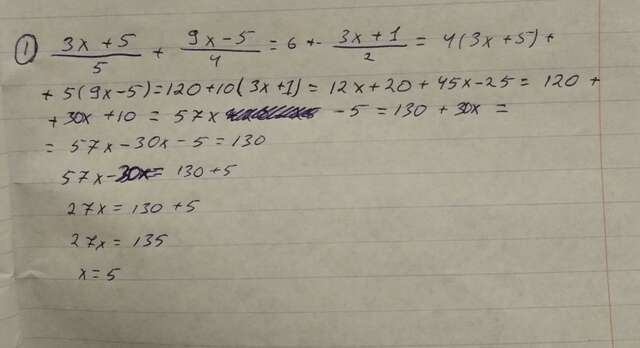 ① (3x+5)/5 + (9x-5)/4 = 6 + (3x+1)/2 = 4(3x+5) +
+ 5(9x-5) = 120 + 10(3x+1) = 12x + 20 + 45x - 25 = 120 +
+ 30x + 10 = 57x - 5 = 130 + 30x =
= 57x - 30x - 5 = 130
57x - 30x = 130 + 5
27x = 130 + 5
27x = 135
x = 5